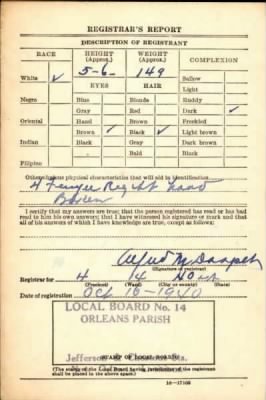 REGISTRAR'S REPORT
DESCRIPTION OF REGISTRANT
RACE HEIGHT (Approx.) WEIGHT (Approx.) COMPLEXION
White ✓ 5-6 149 Sallow
EYES HAIR Light
Negro Blue Blonde Ruddy
Gray Red Dark ✓
Oriental Hazel Brown Freckled
Brown ✓ Black ✓ Light brown
Indian Black Gray Dark brown
Bald Black
Filipino
Other obvious physical characteristics that will aid in identification
4 Finger Right Hand
Broken
I certify that my answers are true; that the person registered has read or has had
read to him his own answers; that I have witnessed his signature or mark and that
all of his answers of which I have knowledge are true, except as follows:
Alfred M
(Signature of registrar)
Registrar for 4 14
(Precinct) (Ward) (City or county) (State)
Date of registration Oct 16-1940
LOCAL BOARD No. 14
ORLEANS PARISH
Jefferson
(STAMP OF LOCAL BOARD)
(The stamp of the Local Board having jurisdiction of the registrant
shall be placed in the above space.)